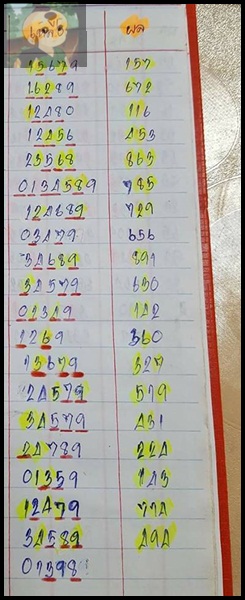 ผล
15679 157
16289 672
12480 116
12456 453
23568 865
0134589 785
124689 729
03479 656
34689 891
34579 630
01349 142
1269 360
15679 327
24579 519
34579 431
24789 224
01359 143
12479 774
34589 494
01398